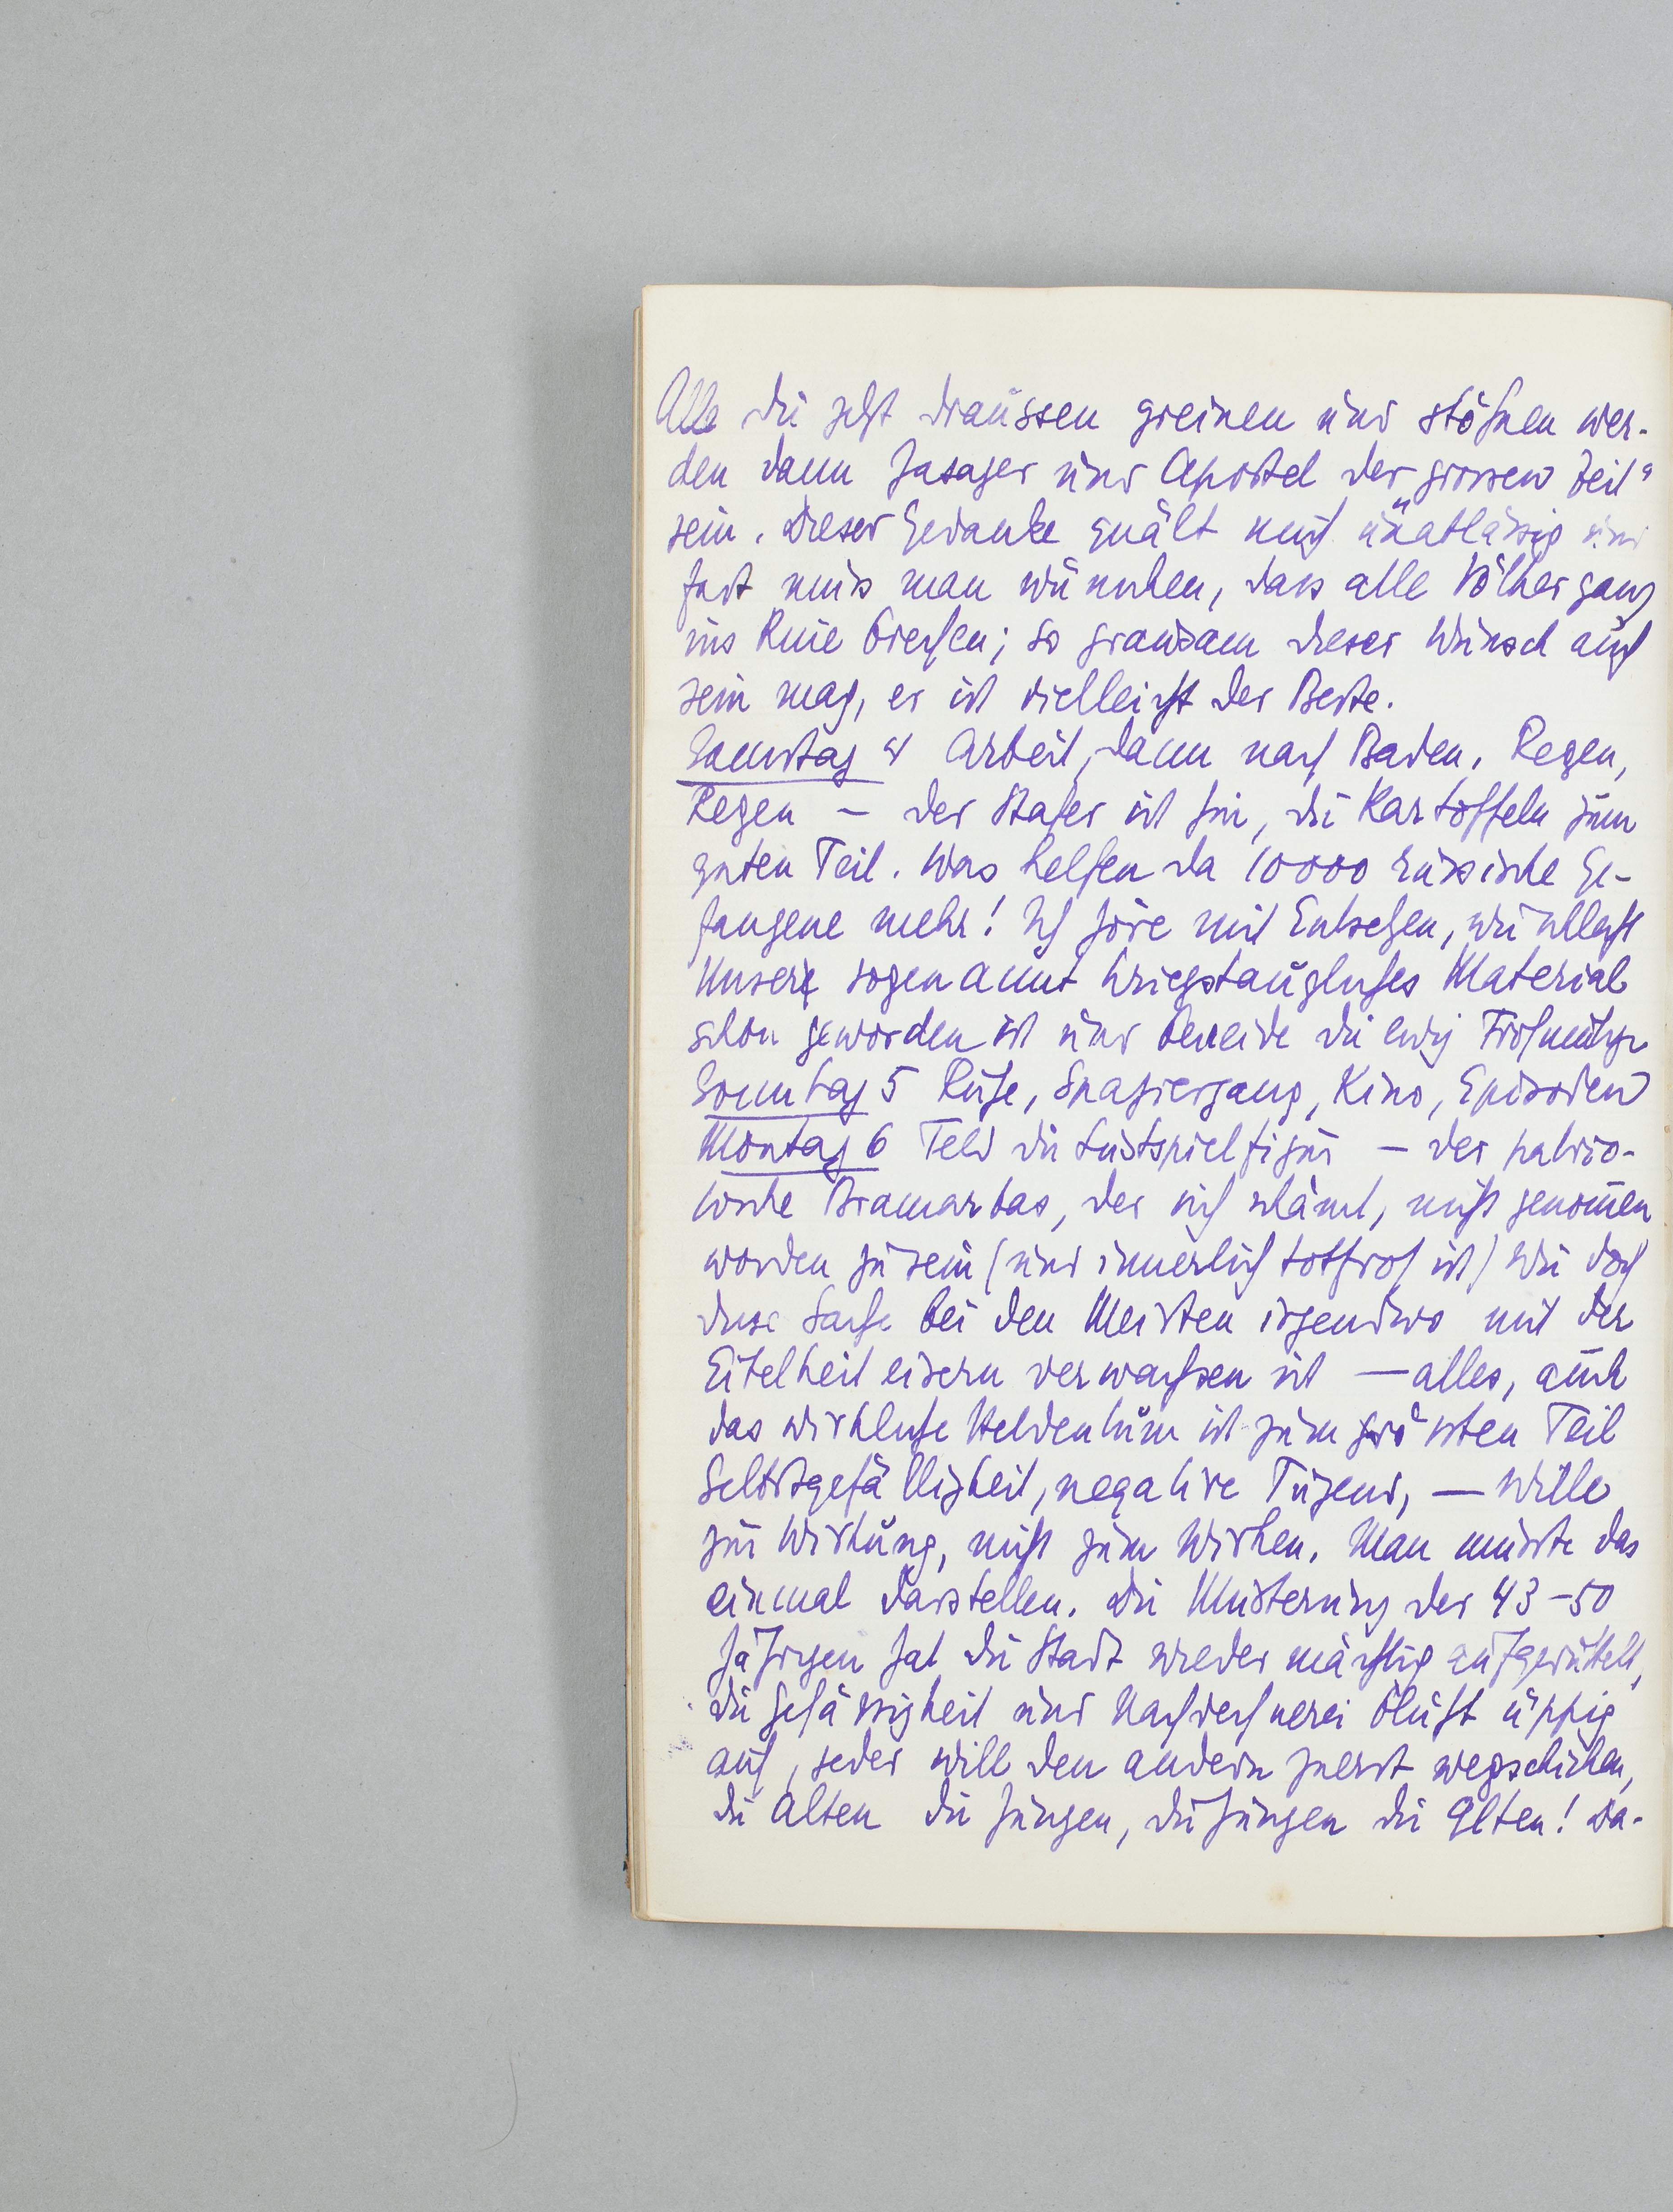 Alle die jetzt draussen greinen und stöhnen wer-
den dann Jasager und Apostel der „grossen Zeit"
sein. Dieser Gedanke quält mich unablässig und
fast muss man wünschen, dass alle Völker ganz
ins Knie brechen; so grausam dieser Wunsch auch
sein mag, er ist vielleicht der Beste.
Samstag 4 Arbeit, dann nach Baden. Regen,
Regen – der Hafer ist hin, die Kartoffeln zum
guten Teil. Was helfen da 10000 russische Ge-
fangene mehr! Ich höre mit Entsetzen, wie schlecht
Unser sogenannt kriegstaugliches Material
schon geworden ist und beneide die ewig Frohmütigen
Sonntag 5 Ruhe, Spaziergang, Kino, Episoden
Montag 6 Feld die Lustspielfigur – der patrio-
tische Bramarbas, der sich schämt, nicht genomen
worden zu sein (und innerlich totfroh ist) Wie doch
diese Sache bei den Meisten irgendwo mit der
Eitelkeit eisern verwachsen ist – alles, auch
das wirkliche Heldentum ist zum grössten Teil
Selbstgefälligkeit, negative Tugend, – Wille
zur Wirkung, nicht zum Wirken. Man müsste das
einmal darstellen. Die Musterung der 43–50
jährigen hat die Stadt wieder mächtig aufgerüttelt,
die Gehässigkeit und Nachrechnerei blüht üppig
auf, jeder will den andern zuerst wegschicken,
die Alten die Jungen, die Jungen die Alten! Da-